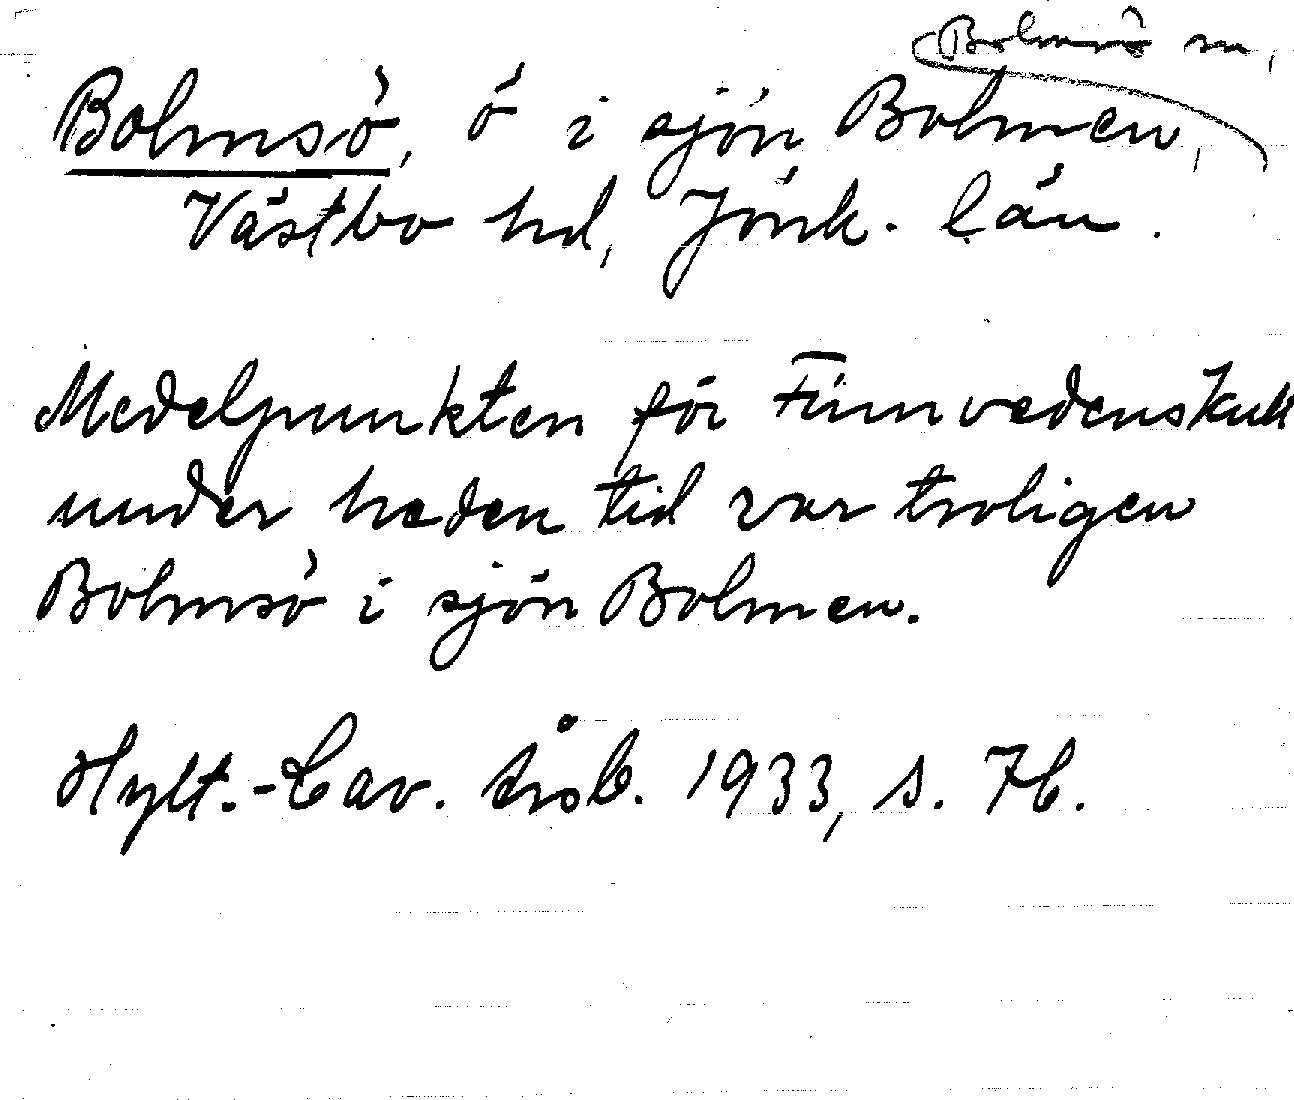 Bolmsö sn,
Bolmsö, ö i sjön Bolmen,
Västbo hd, Jönk. län.
Medelpunkten för Finnvedenskult
under heden tid var troligen
Bolmsö i sjön Bolmen.
Hylt.-Cav. årsb. 1933, s. 76.